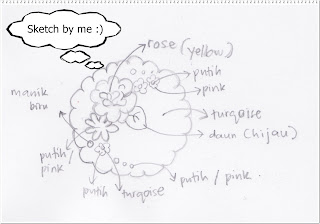 Sketch by me :)
rose (yellow)
putih
pink
manik
biru
turqoise
daun (hijau)
putih
pink
putih / pink
putih
turqoise